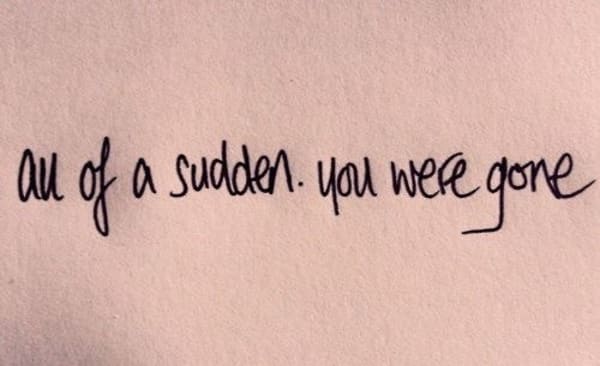 all of a sudden. you were gone